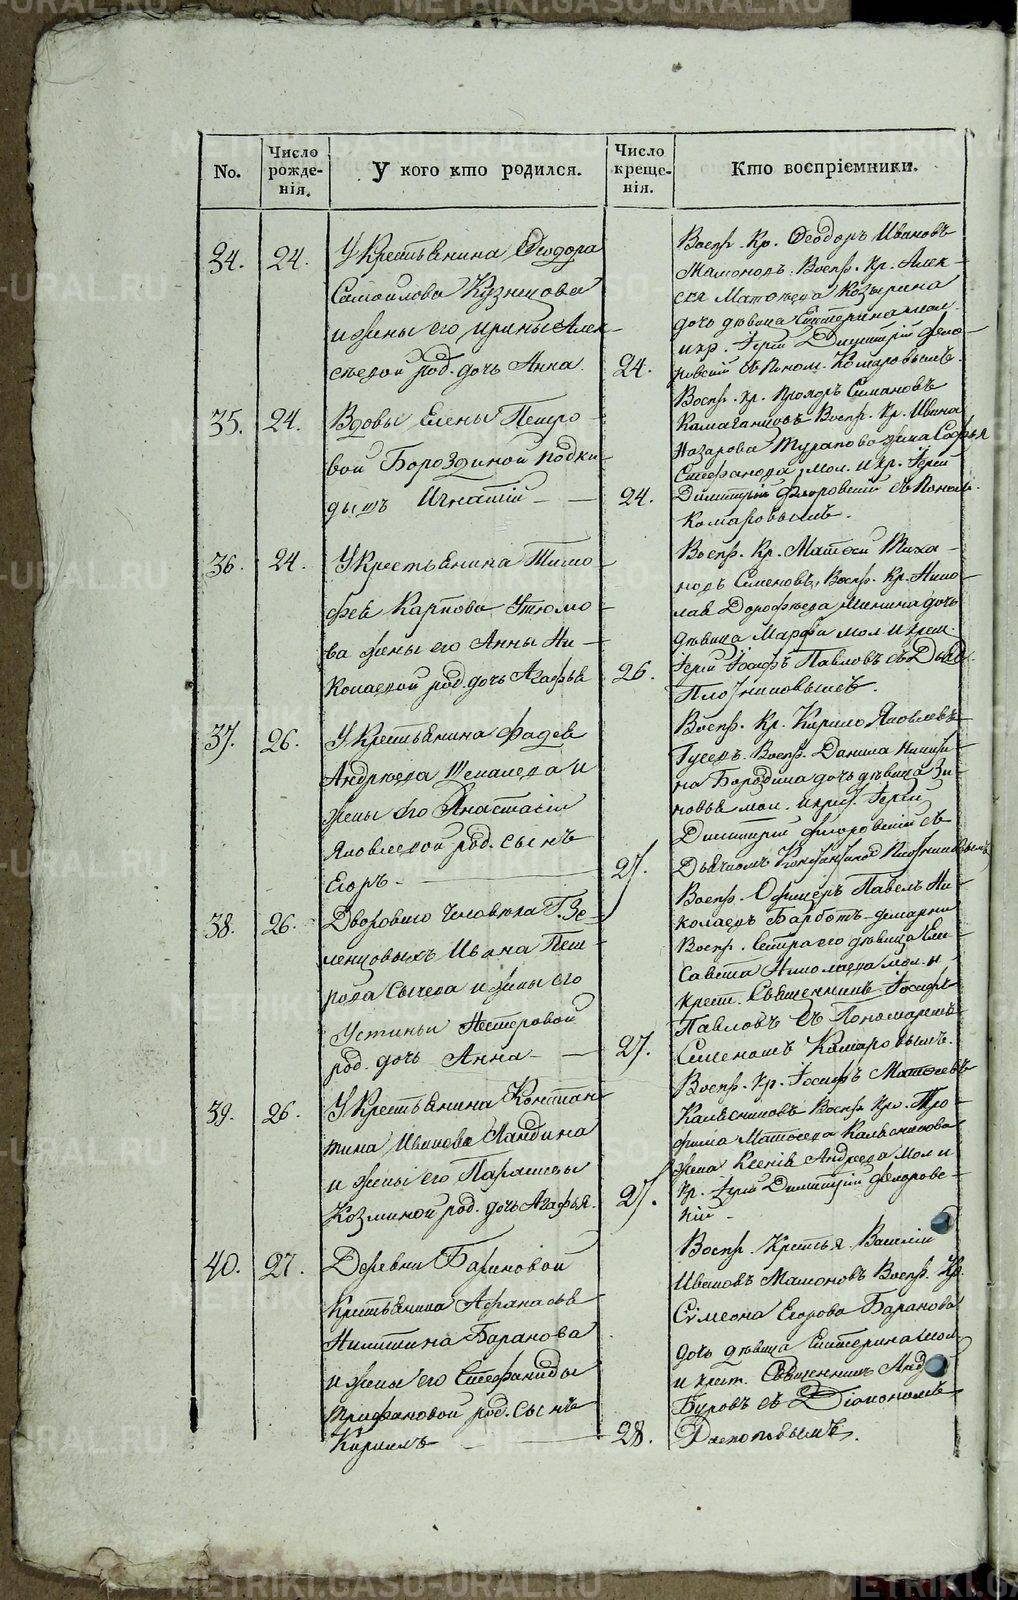 METRIKI.GASO-URAL.RU
No.
Число рожде-нія.
У кого кто родился.
Число креще-нія.
Кто воспріемники.
34. 24.
У Крестьянина Ѳеодора
Самойлова Кузнецова
и жены его Ирины Алек
сѣевой род. дочь Анна.
24.
Воспр. Кр. Ѳеодоръ Ивановъ
Мамоновъ. Воспр. Кр. Алек-
сѣя Матвѣева Козырина
дочь дѣвица Екатерина мол.
и кр. Іерей Димитрій Фло-
ровскій съ Поном. Комаровымъ.
35. 24.
Вдовы Елены Петро-
вой Бороздиной подки-
дышъ Игнатій
24.
Воспр. Кр. Симановъ
Воспр. Кр. Ивана
Назарова жена Софья
Стефанова, мол. и кр. Іерей
Димитрій Флоровскій съ Поном.
Комаровымъ.
36. 24.
У Крестьянина Тимо-
фея Карпова Утюмо-
ва жены его Анны Ни-
колаевой род. дочь Агафья
26.
Воспр. Кр. Матвей Тиха-
новъ Семеновъ, Воспр. Кр. Нико-
лая Дорофѣева Минина дочь
дѣвица Марфа мол. и крест.
Іерей Іосифъ Павловъ съ Дьяч.
Плотниковымъ.
37. 26.
У Крестьянина Фадея
Андрѣева и
жены его Анастасіи
Яковлевой род. сынъ
Егоръ
27.
Воспр. Кр. Кирило Яковлевъ
Гусевъ. Воспр. Данила Ники-
на Бородина дочь дѣвица Зи-
новья мол. и крест. Іерей
Димитрій Флоровскій съ
Дьячкомъ Плотниковымъ
38. 26.
Дворового человѣка Г. Зе-
ленцовыхъ Ивана Пет-
рова Сычева и жены его
Устиньи Нестеровой
род. дочь Анна
27.
Воспр. Офицеръ Павелъ Ни-
колаевъ Барботъ-демарни
Воспр. Сестра его дѣвица Ели-
савета Николаева мол. и
крест. Священникъ Іосифъ
Павловъ съ Пономаремъ
Симеономъ Комаровымъ.
39. 26.
У Крестьянина Констан-
тина Иванова Ландина
и жены его Параскевы
Козминой род. дочь Агафья.
27.
Воспр. Кр. Іосифъ Матвѣевъ
Калѣсниковъ Воспр. Кр. Тро-
фима Матвѣева Калѣсникова
жена Ксенія Андреева мол. и
Кр. Іерей Димитрій Флоровс-
кій
40. 27.
Деревни Бариновой
Крестьянина Афанасья
Никитина Баранова
и жены его Стефаниды
Трифановой род. сынъ
Кирилъ
28.
Воспр. Крестья. Василій
Ивановъ Мамоновъ Воспр. Кр.
Сѵмеона Егорова Баранова
дочь дѣвица Екатерина мол.
и крест. Священникъ
Буровъ съ Діакономъ
Распоповымъ.
METRIKI.GASO-URAL.RU